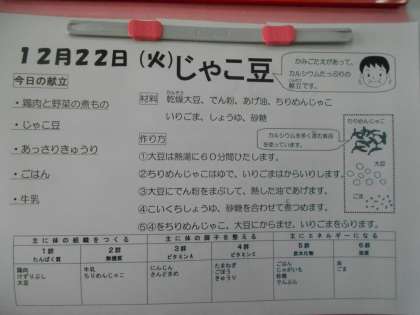 12月22日(火)じゃこ豆
かみごたえがあって、
カルシウムたっぷりの
献立です。
今日の献立
・鶏肉と野菜の煮もの
・じゃこ豆
・あっさりきゅうり
・ごはん
・牛乳
材料 乾燥大豆、でん粉、あげ油、ちりめんじゃこ
いりごま、しょうゆ、砂糖
作り方
カルシウムを多く含む食品
を使っています。
①大豆は熱湯に60分間ひたします。
②ちりめんじゃこはゆで、いりごまはからいりします。
③大豆にでん粉をまぶして、熱した油であげます。
④こいくちしょうゆ、砂糖を合わせて煮つめます。
⑤④をちりめんじゃこ、大豆にからませ、いりごまをふります。
ちりめんじゃこ
大豆
ごま
主に体の組織をつくる 主に体の調子を整える 主にエネルギーになる
1群 2群 3群 4群 5群 6群
たんぱく質 無機質 ビタミンA ビタミンC 炭水化物 脂質
鶏肉
けずりぶし
大豆
牛乳
ちりめんじゃこ
にんじん
さんどまめ
たまねぎ
ごぼう
きゅうり
ごはん
じゃがいも
砂糖
でんぷん
油
ごま